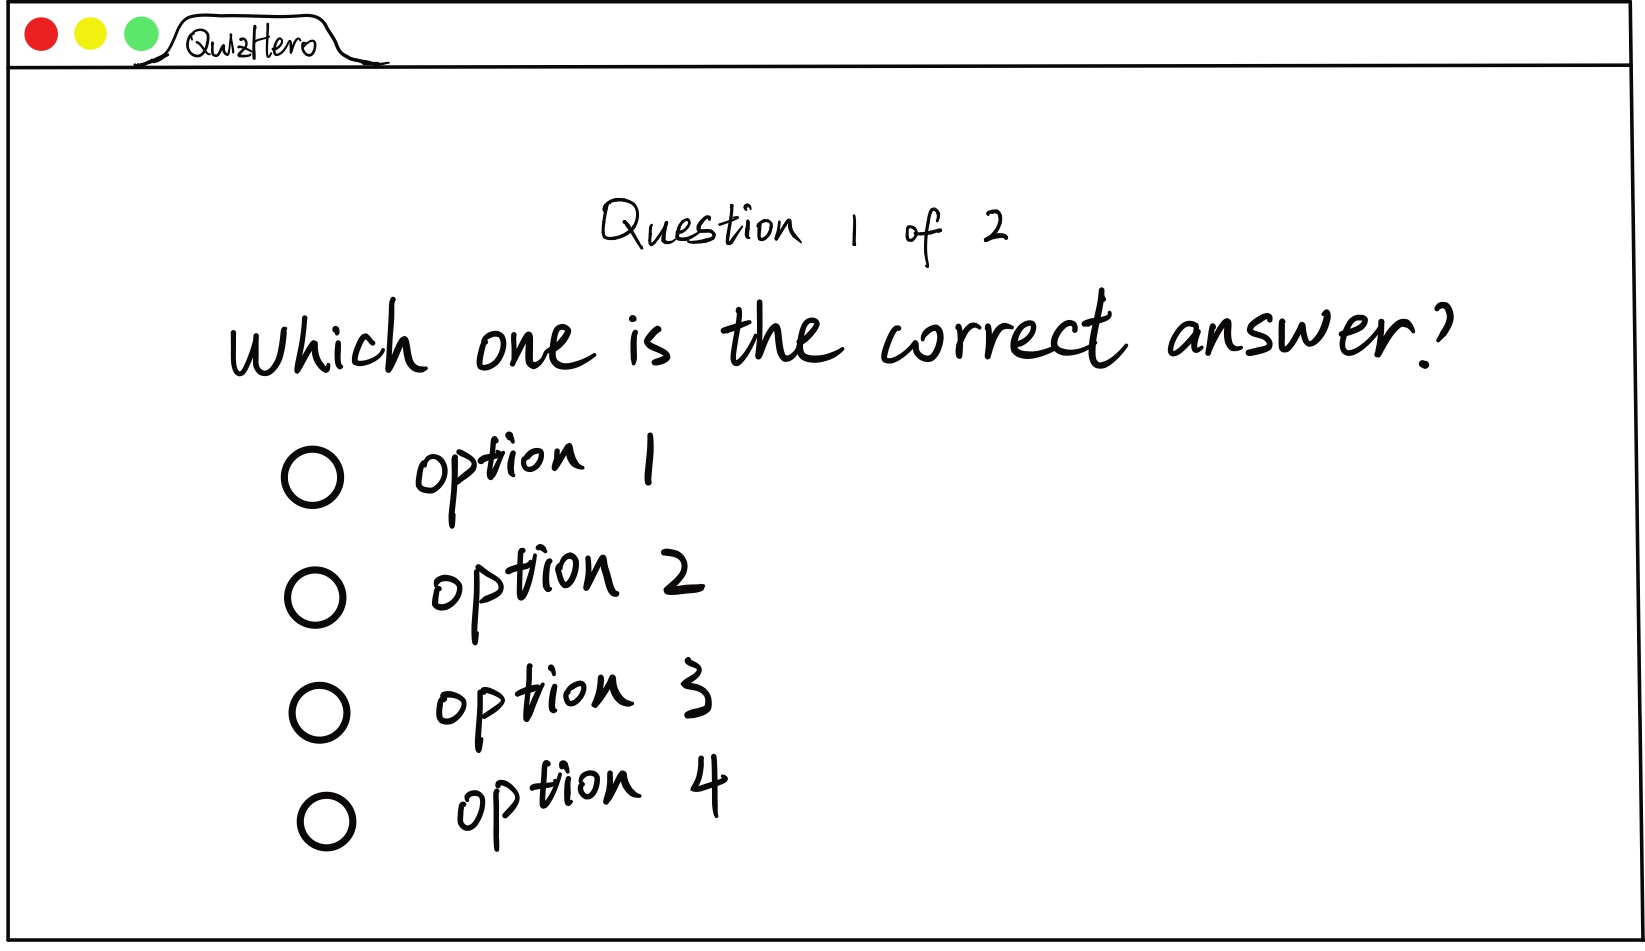 QuizHero
Question 1 of 2
Which one is the correct answer?
option 1
option 2
option 3
option 4